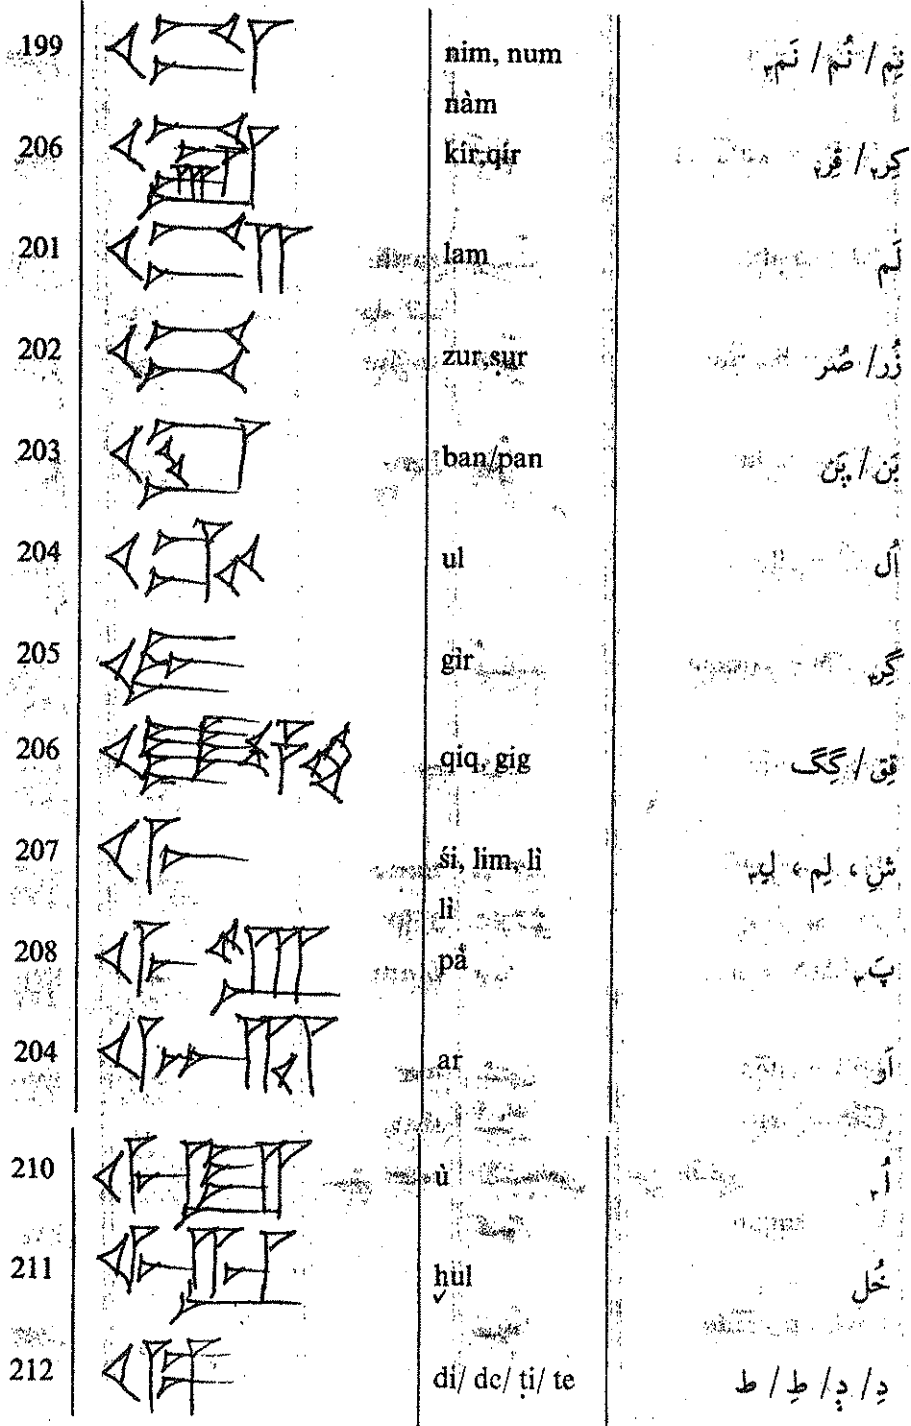 199 nim, num نِم / نُم / نَم٣
nàm
206 kír,qír کِر٢ / قِر٢
201 lam لَم
202 zur,ṣur زُر / صُر
203 ban/pan بَن / پَن
204 ul اُل
205 gìr گِر٣
206 qiq, gig قِق / گِگ
207 śi, lim, lì شِ ، لِم ، لِ٣
lì
208 pà پَ٣
204 ar اَر
210 ù اُ٣
211 ḫul خُل
212 di/ de/ ṭi/ te دِ / دِ / طِ / ط